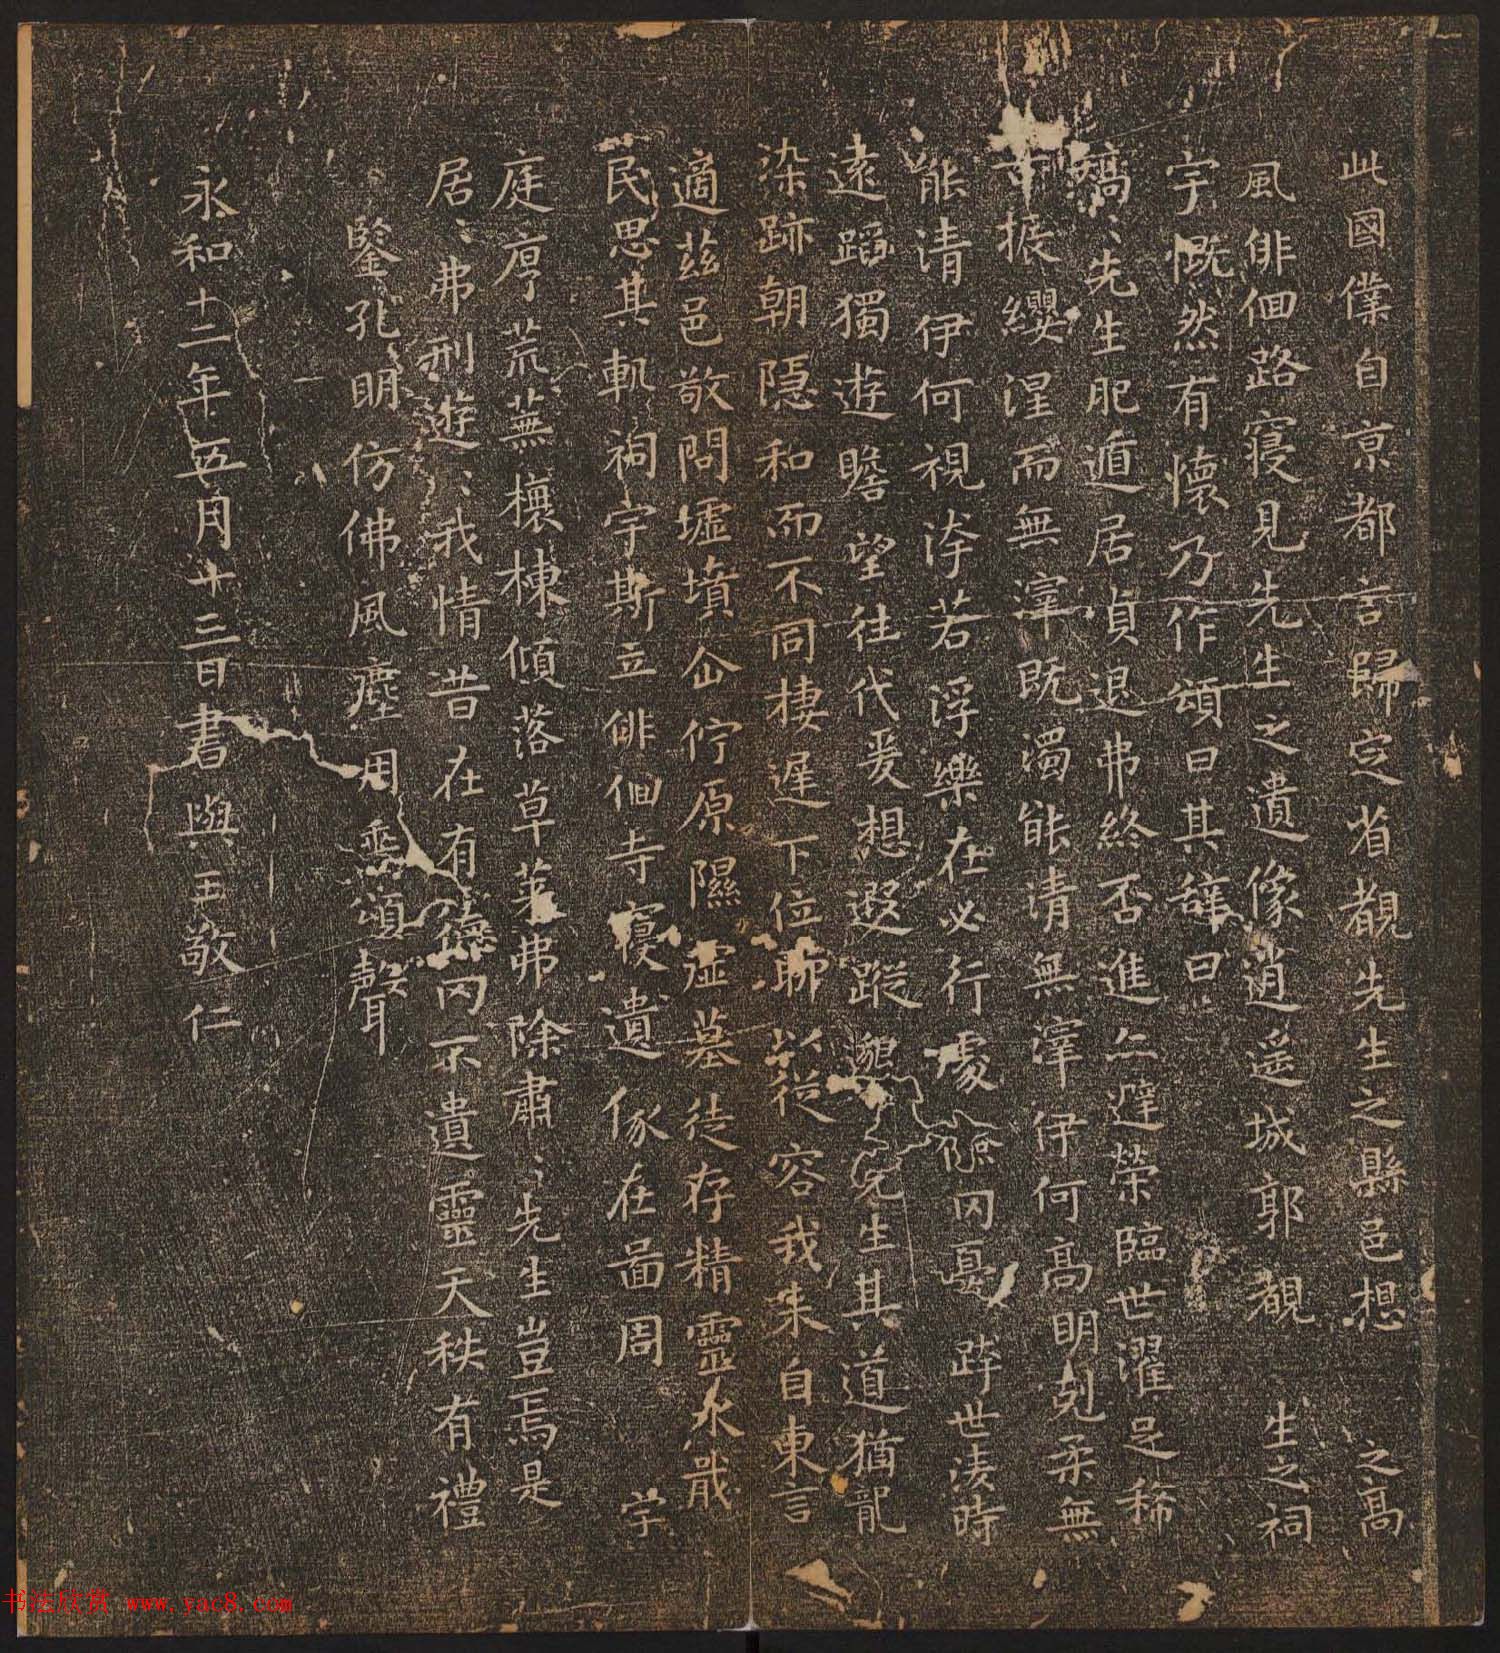 此國僕自京都言歸定省覩先生之縣邑想 之高
風俳佪路寝見先生之遺像逍遥城郭覩 生之祠
宇慨然有懷乃作頌曰其辭曰
矯〻先生肥遁居貞退弗終否進亦避榮臨世濯足稀
古振纓涅而無滓既濁能清無滓伊何高明剋柔無
能清伊何視洿若浮樂在必行處儉罔憂跨世淩時
遠蹈獨遊瞻望往代爰想遐蹤邈〻先生其道猶龍
染跡朝隱和而不同棲遲下位聊以從容我來自東言
適茲邑敬問墟墳企佇原隰虛墓徒存精靈永戢
民思其軌祠宇斯立俳佪寺寢遺像在啚周 宇
庭序荒蕪榱棟傾落草萊弗除肅〻先生豈焉是
居〻弗刑遊〻我情昔在有德罔不遺靈天秩有禮
鑒孔明仿佛風塵用垂頌聲
永和十二年五月十三日書與王敬仁
书法欣赏 www.yac8.com